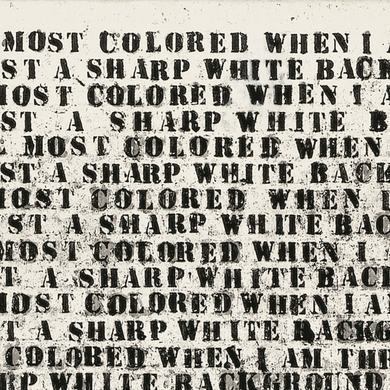 MOST COLORED WHEN I A
ST A SHARP WHITE BACK
MOST COLORED WHEN I A
ST A SHARP WHITE B
MOST COLORED WHEN
ST A SHARP WHITE BACK
MOST COLORED WHEN I
ST A SHARP WHITE BAC
MOST COLORED WHEN I
T A SHARP WHITE BACK
MOST COLORED WHEN I A
T A SHARP WHITE BACKG
COLORED WHEN I AM TH
RP WHITE BACKGROUND